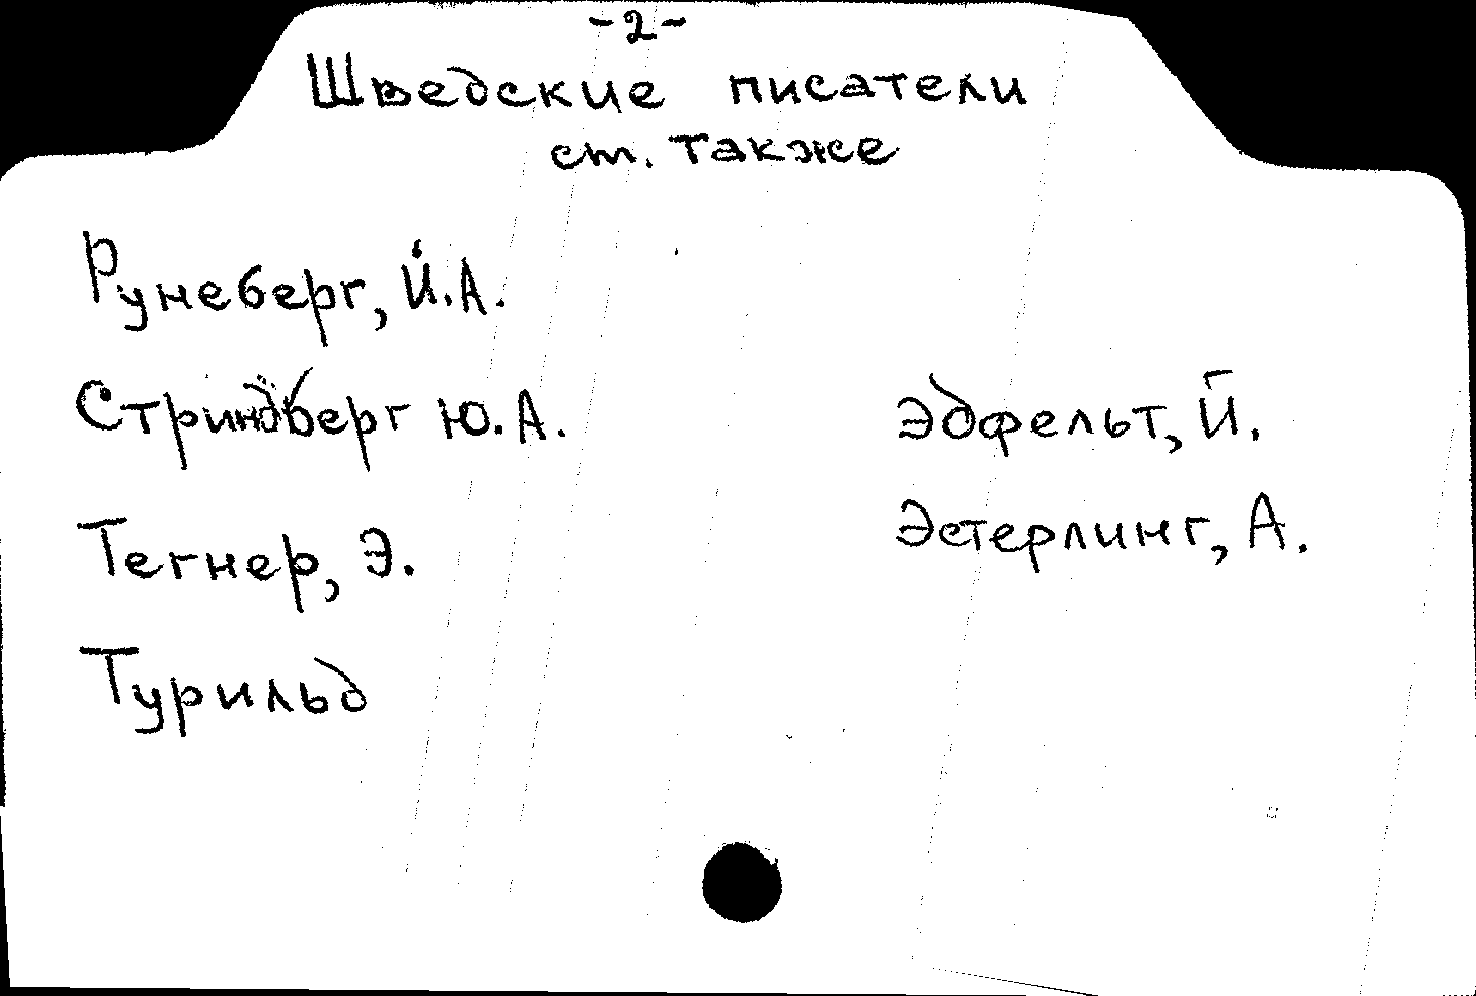 -2-
Шведские писатели
см. также
Рунеберг, Й.А.
Стриндберг Ю.А.
Тегнер, Э.
Турильд
Эдфельт, Й.
Эстерлинг, А.